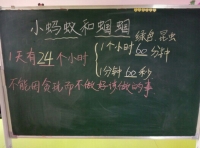 小蚂蚁和蝈蝈
绿色.昆虫
1天有24个小时 { 1个小时60分钟
1分钟60秒
不能因贪玩而不做好该做的事